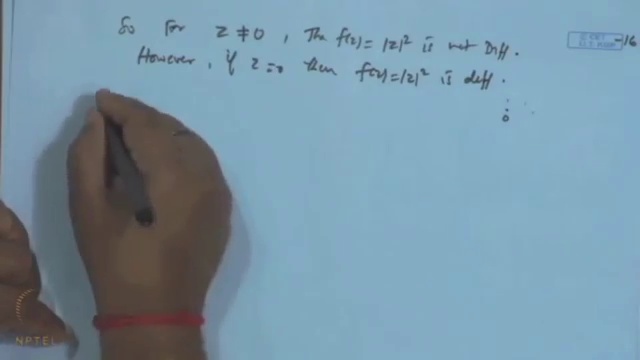 So for z ≠ 0, the f(z) = |z|² is not Diff.
However, if z = 0 then f(z) = |z|² is diff.
0
-16
NPTEL